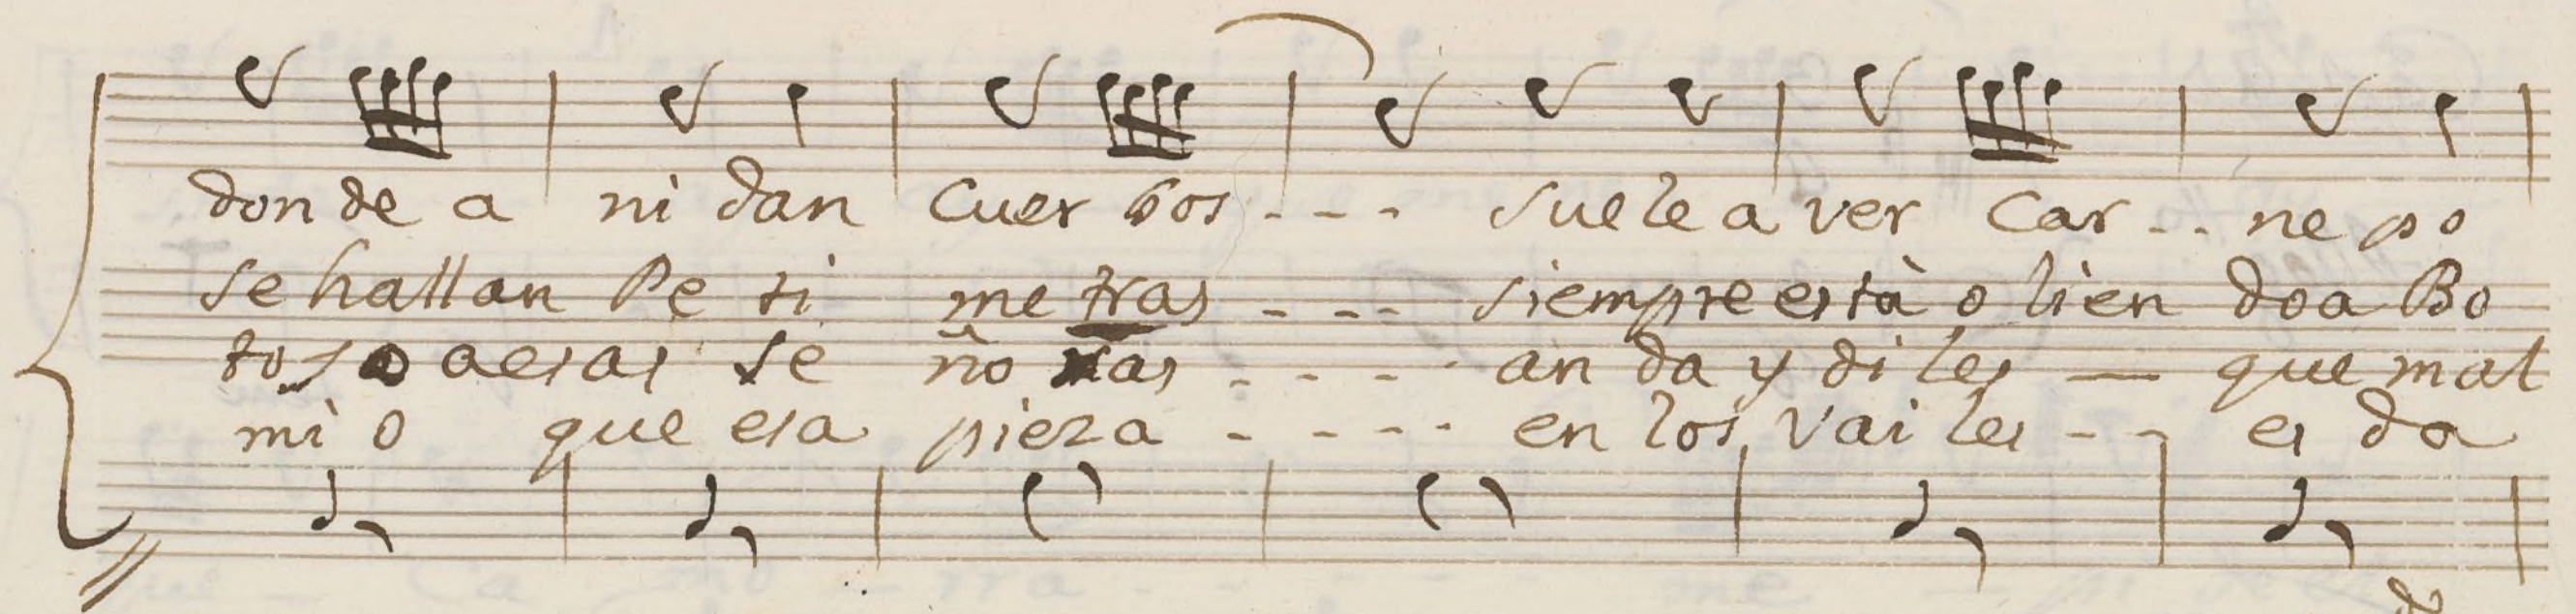 don de a ni dan Cuer bos - - - suele a ver Car - - ne po
se hallan Pe ti me tras - - - siempre está o lien doa Bo
tos a aesas se ño ras - - - - an da y di les — que mal
mi o que esa pieza - - - - en los vai les - - es da